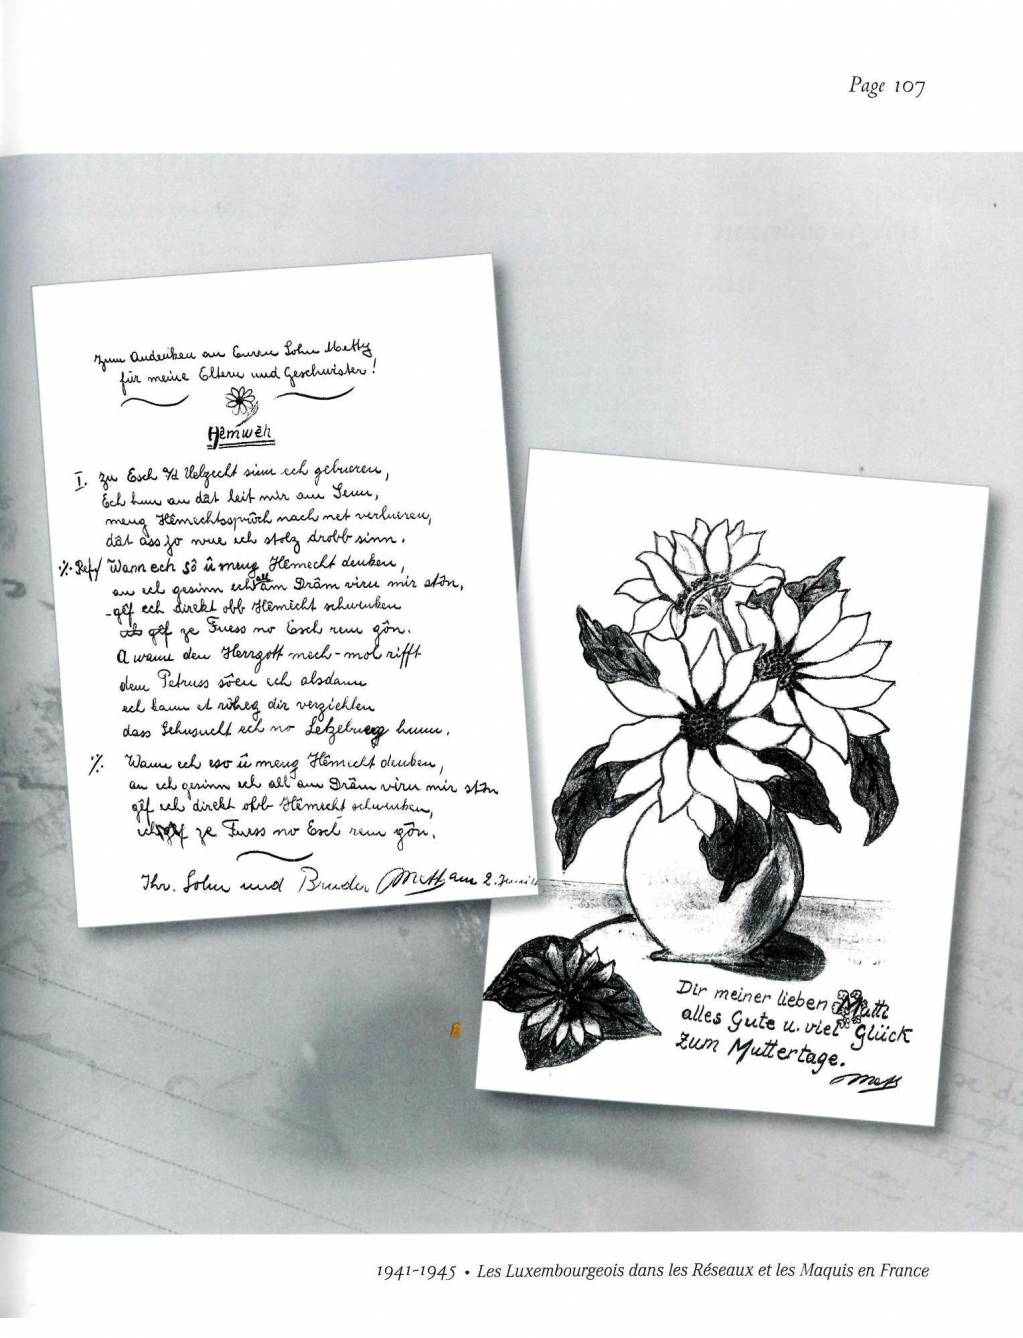 Page 107
Zum Andenken an Euren Sohn Metty
für meine Eltern und Geschwister!
Hêmwêh
I. Zu Esch a/d Uelzecht sinn ech gebueren,
Ech hun an dât leit mir am Senn,
meng Hêmechtsprôch nach net verlueren,
dât ass jo wue ech stolz drobb sinn.
·/· Ref/ Wann ech sô û meng Hêmecht denken,
an ech gesinn ech all am Drâm viru mir stôn,
gêf ech direkt obb Hêmecht schwenken
ech gêf ze Fuess no Esch rem gôn.
A wann den Herrgott mech-mol rifft
dem Petruss sôen ech alsdann
ech kann et rôheg dir verziehlen
dass Sehnsucht ech no Letzebuerg hunn.
·/· Wann ech eso û meng Hêmecht denken,
an ech gesinn ech all am Drâm viru mir stôn
gêf ech direkt obb Hêmecht schwenken,
ech gêf ze Fuess no Esch rem gôn.
Ihr. Sohn und Bruder Mett am 2.
Dir meiner lieben Mutti
alles Gute u. viel Glück
zum Muttertage.
Mett
1941-1945 • Les Luxembourgeois dans les Réseaux et les Maquis en France